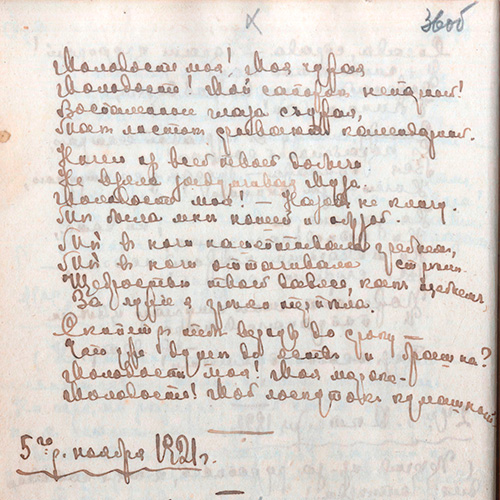 36об
Молодость моя! Моя чужая
Молодость! Мой сапожок непарный!
Воспаленные глаза сужая,
Так листок срывают календарный.
Ничего из всей твоей добычи
Не взяла задумчивая Муза.
Молодость моя! — Назад не кличу.
Ты была мне ношей и обузой.
Ты в ночи нашептывала гребнем,
Ты в ночи оттачивала стрелы.
Щедростью твоей давясь, как щебнем,
За чужие я грехи терпела.
Скипетр тебе вернув до сроку —
Что уже душе до яств и брашна?
Молодость моя! Моя морока —
Молодость! Мой лоскуток кумашный!
5го р. ноября 1921г.